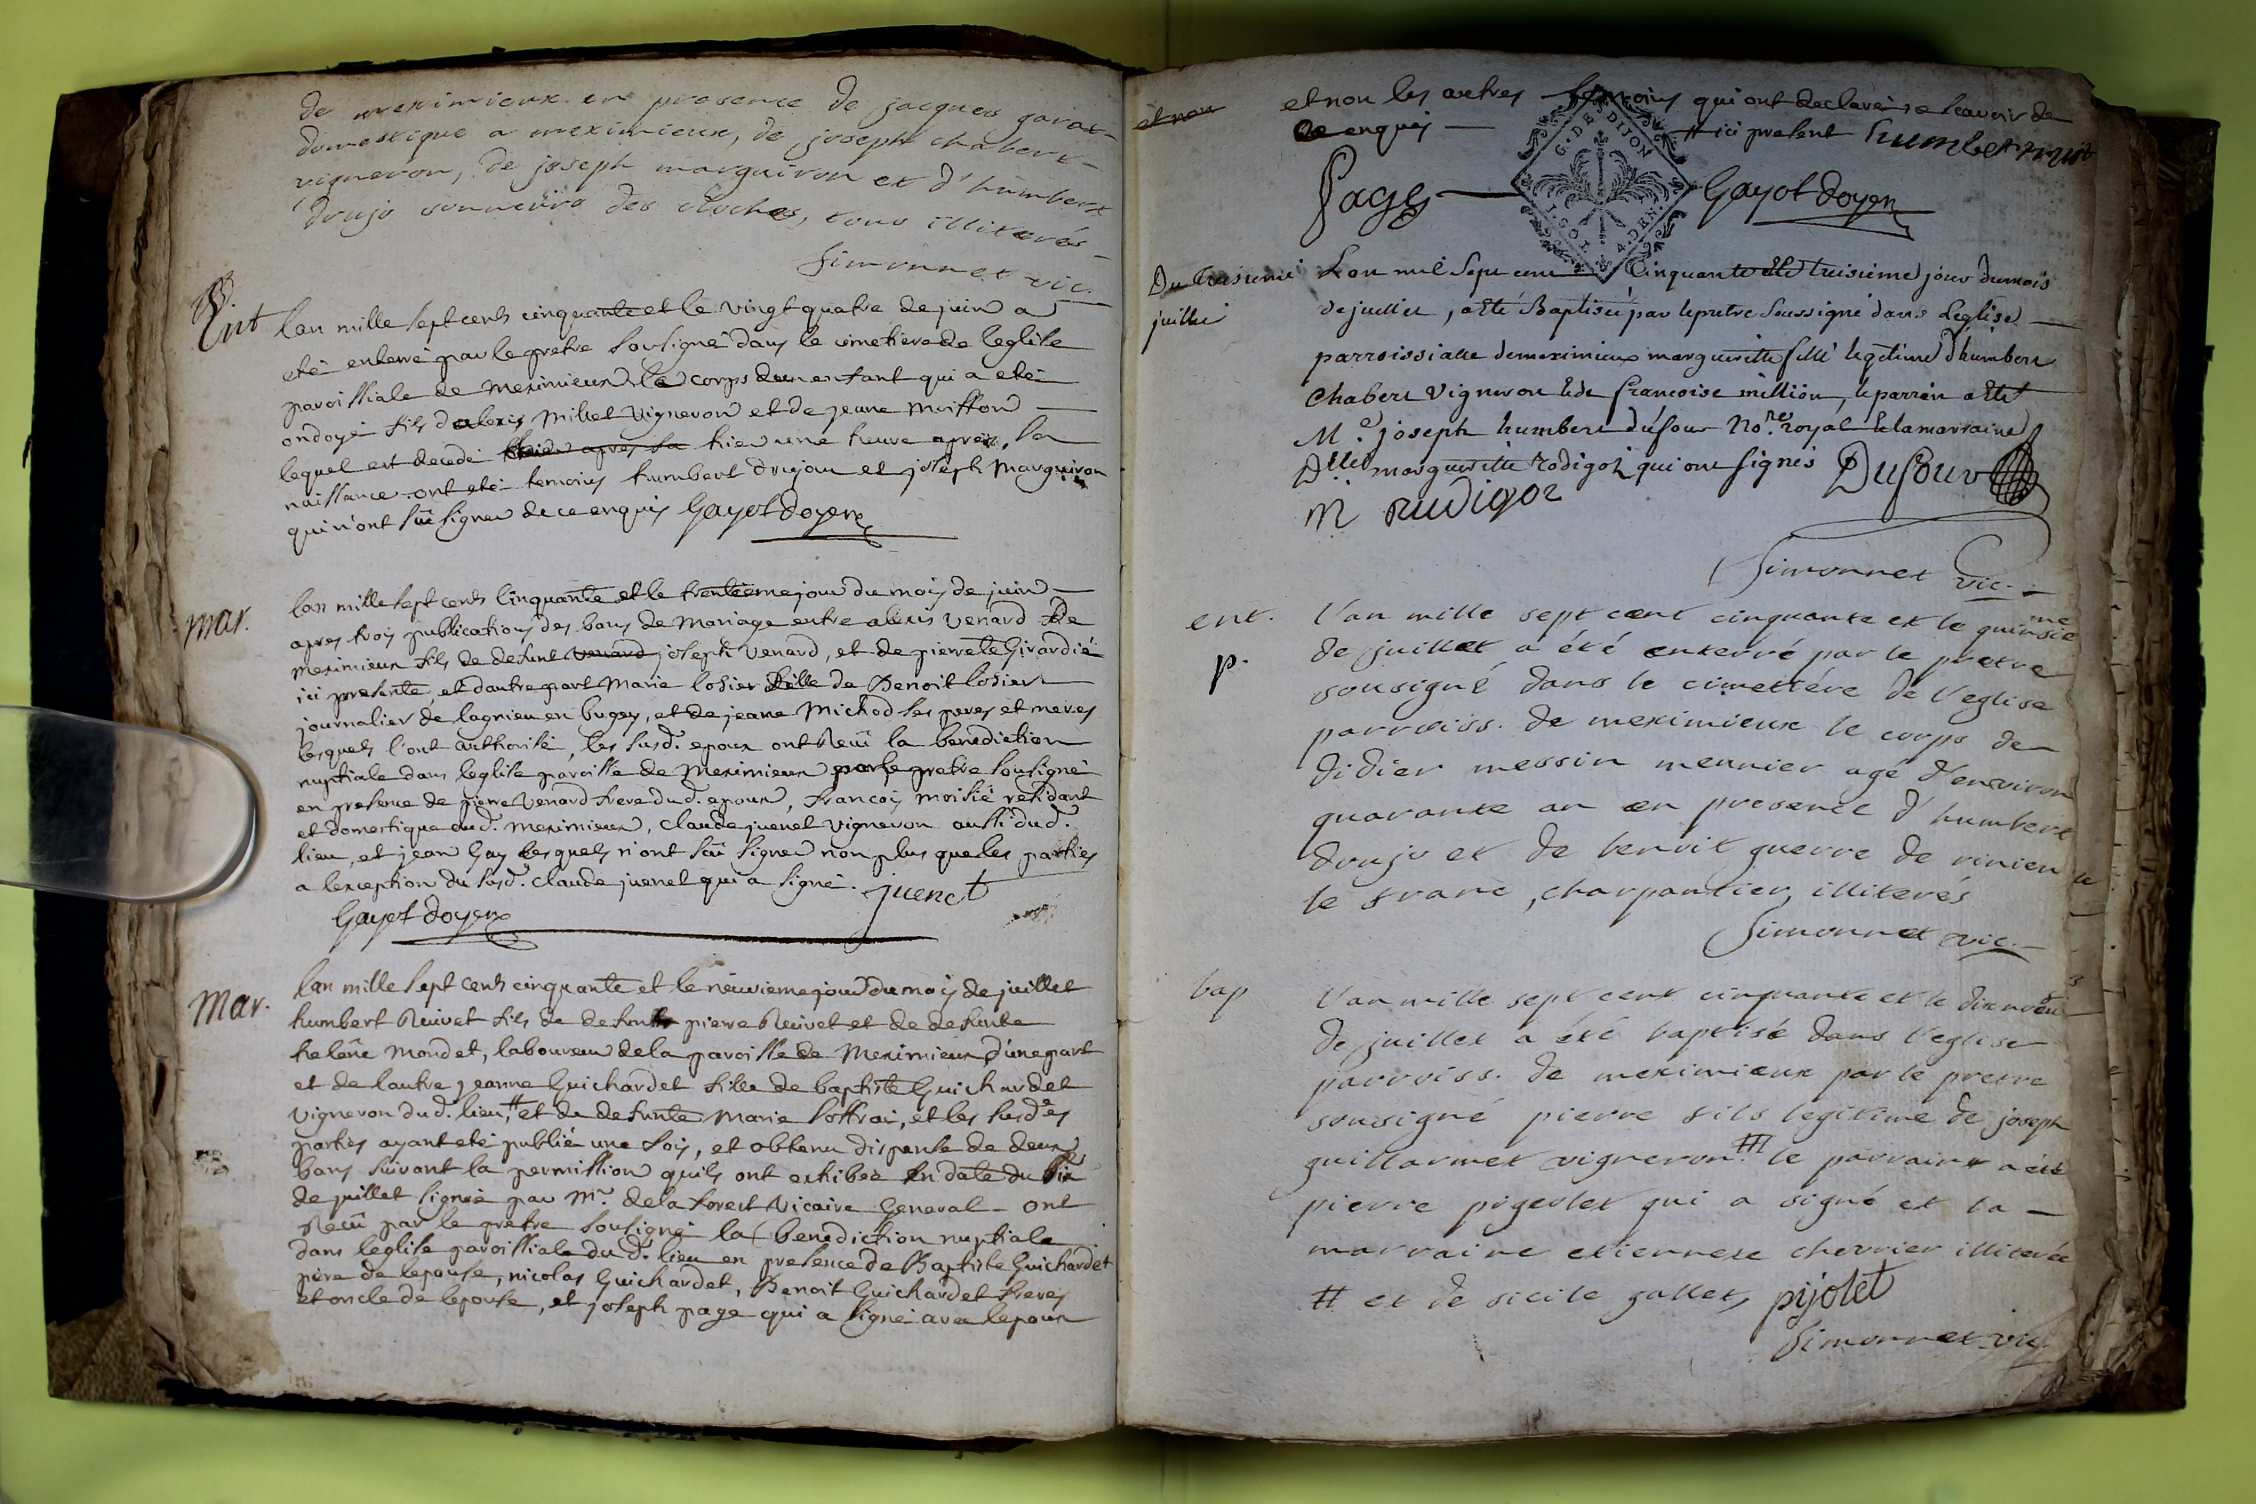 de meximieux en presence de jacques garat
domestique a meximieux, de joseph chabert
vigneron, de joseph marguiron et d'humbert
drujo sonneurs des cloches, tous illiterés
Simonnet vic.
Ent
lan mille sept cents cinquante et le vingt quatre de juin a
eté enterré par le pretre sousigné dans le cimetiere de leglise
paroissiale de meximieux le corps dun enfant qui a eté
ondoyé fils dalexis Millet vigneron et de jeane Moiffon
lequel est decedé hier une heure apres sa
naissance ont eté temoins humbert drujou et joseph Marguiron
qui n'ont sçu signer de ce enquis Gayot doyen
mar.
lan mille sept cents Cinquante et le trentieme jour du mois de juin
apres trois publications des bans de Mariage entre alexis Venard de
meximieux fils de defunt venard joseph venard, et de pierrette Girardié
ici presente, et dautre part Marie losier fille de Benoit losier
journalier de lagnieu en bugey, et de jeane Michod ses peres et meres
lesquels l'ont authorisé, les susd. epoux ont Reçu la benediction
nuptiale dans leglise paroisse de Meximieux par le pretre sousigné
en presence de pierre Venard frere dud. epoux, francois moisié residant
et domestique aud. meximieux, Claude juenet vigneron aussi dud.
lieu, et jean Gay lesquels n'ont sçu signer non plus que les parties
a lexception du susd. Claude juenet qui a signé. juenet
Gayot doyen
Mar.
lan mille sept cents cinquante et le neuvieme jour du mois de juillet
humbert Ruivet fils de defunt pierre Ruivet et de defunte
helaine Mondet, laboureur de la paroisse de Meximieux d'une part
et de lautre jeanne Guichardet fille de baptiste Guichardet
vigneron dud. lieu, # et de defunte Marie soffrai, et les susd.es
parties ayant eté publié une fois, et obtenu dispense de deux
bans suivant la permission quils ont exhibée en date du six
de juillet signée par Mr dela forest Vicaire General - ont
Reçu par le pretre sousigné la benediction nuptiale
dans leglise paroissiale dud. lieu en presence de Baptiste Guichardet
père de lepouse, nicolas Guichardet, Benoit Guichardet freres
et oncle de lepouse, et joseph page qui a signé avec lepoux
et non
et non les autres temoins qui ont declaré ne scavoir de
ce enquis # ici present humbert ruivet
Page Gayot doyen
G. DE DIJON
Du troisieme
juillet
Lan mil sept cent Cinquante et le troisieme jour du mois
de juillet, a eté Baptisée par le pretre soussigné dans Leglise
parroissialle de meximieux margueritte fille legitime d'humbert
Chabert vigneron et de francoise million, le parrein a eté
M.e joseph humbert dufour No.re royal et la marraine
D.lle margueritte rodigoz qui ont signés Dufour
M rudigoz
Simonnet vic.
ent.
p.
l'an mille sept cent cinquante et le quinsieme
de juillet a été enterré par le pretre
sousigné dans le cimetiére de l'eglise
parroiss. de meximieux le corps de
didier messin meunier agé d'environ
quarante an en presence d'humbert
drujo et de benoit guerre de rinieu le
le franc, charpantier, illiterés
Simonnet vic.
bap
l'an mille sept cent cinquante et le dixneuf
de juillet a été baptisé dans l'eglise
parroiss. de meximieux par le pretre
sousigné pierre fils legitime de joseph
guillarmet vigneron # le parrain a été
pierre pigeolet qui a signé et la
marraine etiennete chevrier illiterée
# et de sicile gallet, pijolet
Simonnet vic.